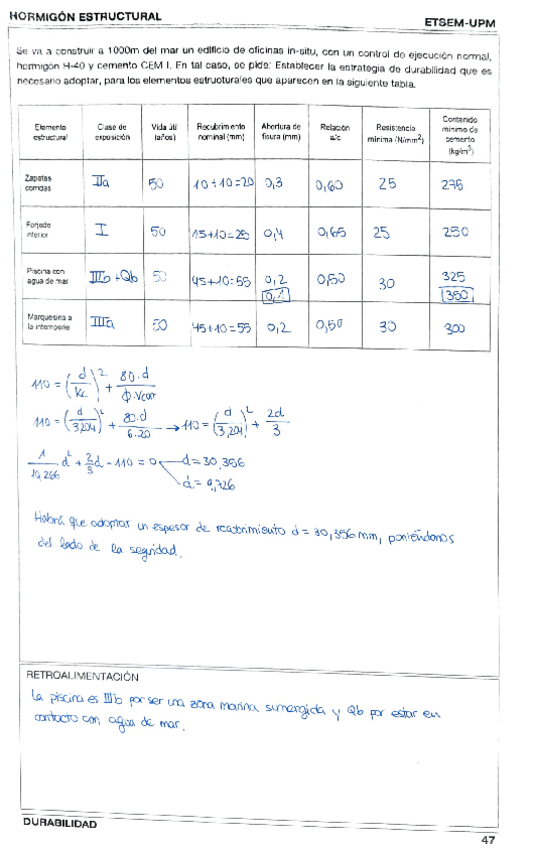 HORMIGÓN ESTRUCTURAL
ETSEM-UPM
Se va a construir a 1000m del mar un edificio de oficinas in-situ, con un control de ejecución normal,
hormigón H-40 y cemento CEM I. En tal caso, se pide: Establecer la estrategia de durabilidad que es
necesario adoptar, para los elementos estructurales que aparecen en la siguiente tabla.
Elemento estructural Clase de exposición Vida útil (años) Recubrimiento nominal (mm) Abertura de fisura (mm) Relación a/c Resistencia mínima (N/mm²) Contenido mínimo de cemento (kg/m³)
Zapatas corridas IIa 50 10+10=20 0,3 0,60 25 275
Forjado interior I 50 15+10=25 0,4 0,65 25 250
Piscina con agua de mar IIIb +Qb 50 45+10=55 0,2 0,1 0,50 30 325 350
Marquesina a la intemperie IIIa 50 45+10=55 0,2 0,50 30 300
110 = (d/kc)² + 80·d/φ·Vcorr
110 = (d/3,204)² + 80·d/6·20 → 110 = (d/3,204)² + 2d/3
1/10,266 d² + 2/3 d - 110 = 0 d = 30,356
d = 9,726
Habrá que adoptar un espesor de recubrimiento d = 30,356 mm, poniéndonos
del lado de la seguridad.
RETROALIMENTACIÓN
La piscina es IIIb por ser una zona marina sumergida y Qb por estar en
contacto con agua de mar.
DURABILIDAD
47